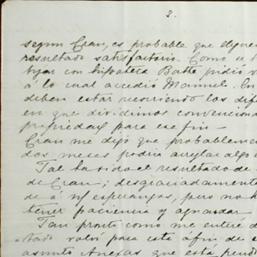 2.
segun Cran, es probable que el
resultado satisfactorio. Como
con hipoteca Batte pidio
á lo cual accedió Manuel. En
deben estar reuniendo los
en que dividimos
propiedad para ese fin-
Cran me dijo que probablemen
dos meses podria arreglar algo
Tal ha sido el resultado de
de Cran; desgraciadamente
de á mis esperanzas, pero no h
tener paciencia y aguardar.
Tan pronto como me enteré d
tado volví para este afin de
asunto Anexas que esta